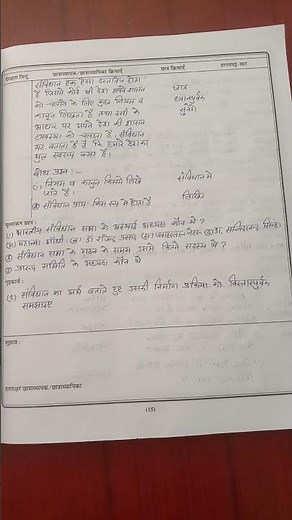 शिक्षण बिन्दु छात्राध्यापक/छात्राध्यापिका क्रियाएँ छात्र क्रियाएँ श्यामपट्ट-सार
संविधान एक ऐसा दस्तावेज होता
है जिसमें कोई भी देश अपने शासन
को चलाने के लिए कुछ नियम व
कानून लिखता है तथा उसी के
आधार पर अपने देश की शासन
व्यवस्था को चलाता है। संविधान
यह बताता है कि हमारे देश का
मूल स्वरूप क्या है।
छात्र
ध्यानपूर्वक
सुनेंगे
बोध प्रश्न :-
(1) नियम व कानून किसमें लिखे
जाते हैं।
संविधान में
(2) संविधान प्रायः किस रूप में होता है
लिखित
मूल्यांकन प्रश्न :
(1) भारतीय संविधान सभा के अस्थायी अध्यक्ष कौन थे ?
(अ) महात्मा गाँधी (ब) डॉ राजेन्द्र प्रसाद (स) जवाहरलाल नेहरू (द) डॉ. सच्चिदानन्द सिन्हा
(2) संविधान सभा के गठन के समय उसमें कितने सदस्य थे ?
(3) प्रारूप समिति के अध्यक्ष कौन थे
गृहकार्य :
(1) संविधान का अर्थ बताते हुए उसकी निर्माण प्रक्रिया को विस्तारपूर्वक
समझाइए
सुझाव :
हस्ताक्षर छात्राध्यापक/छात्राध्यापिका
(15)